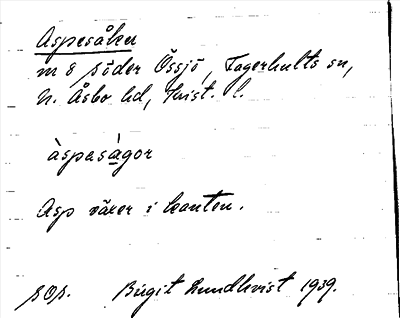 Aspesåker
m 8 söder Össjö, Fagerhults sn,
N. Åsbo hd, Krist. l.
àspasàgor
Asp växer i kanten.
sOp. Birgit Lundkvist 1939.